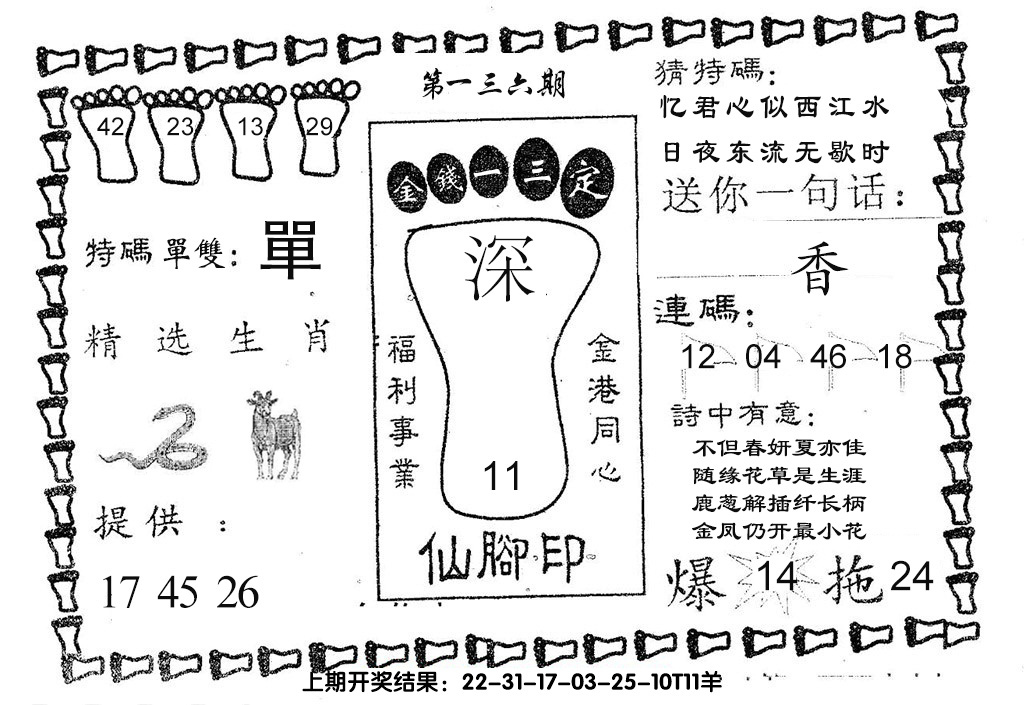 第一三六期
42 23 13 29
特碼單雙: 單
精选生肖
提供:
17 45 26
金錢一三定
深
福利事業
金港同心
11
仙腳印
猜特碼:
忆君心似西江水
日夜东流无歇时
送你一句话:
香
連碼:
12 04 46 18
詩中有意:
不但春妍夏亦佳
随缘花草是生涯
鹿葱解插纤长柄
金凤仍开最小花
爆 14 拖 24
上期开奖结果：22-31-17-03-25-10T11羊